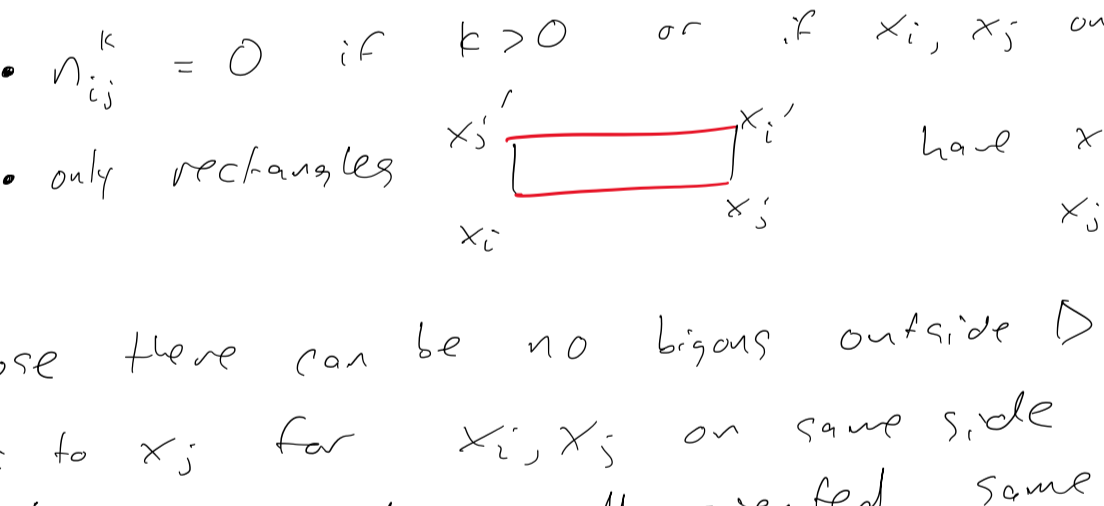 • n_{ij}^k = 0 if k > 0 or if x_i, x_j on
x_j' x_i'
• only rectangles have x
x_i x_j x_j
ose there can be no bigons outside D
to x_j for x_i, x_j on same side
same